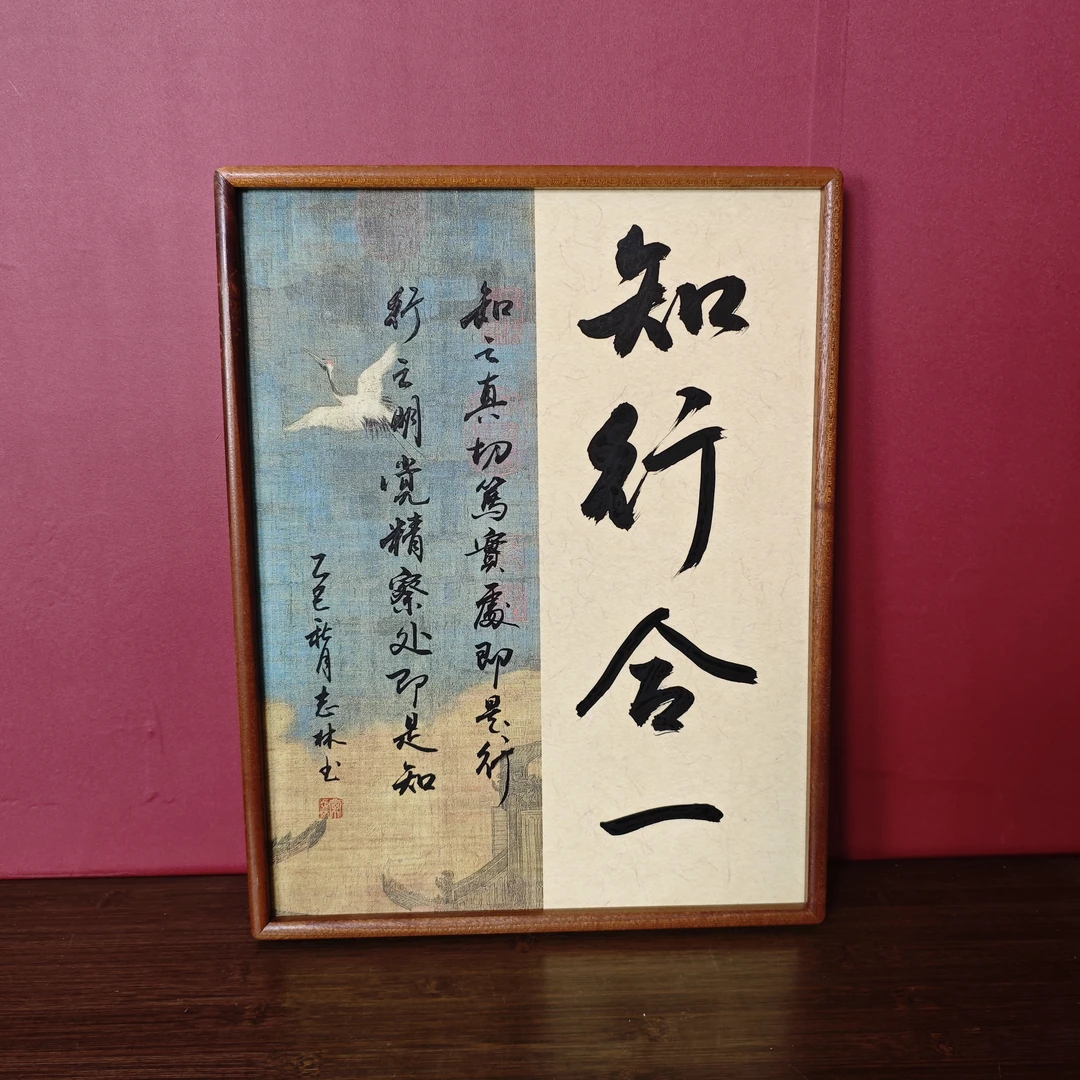 知行合一
知之真切篤實處即是行
行之明觉精察处即是知
乙巳秋月志林书